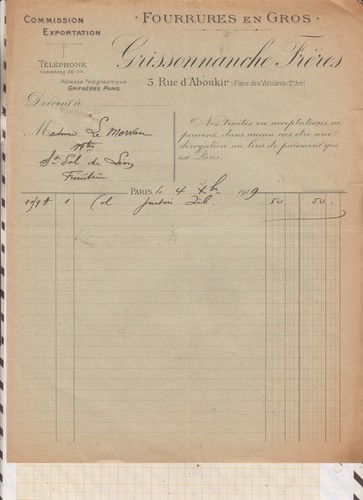 Commission
Exportation
Fourrures en Gros
Téléphone
Adresse Télégraphique
Grifrères-Paris
Grissonnanche Frères
5, Rue d'Aboukir (Place des Victoires-2e Arrt)
Doivent à
Madame Le Morvan
St Pol de Léon
Finistère
Nos traites ou acceptations ne
peuvent dans aucun cas être une
dérogation au lieu de paiement qui
est Paris.
Paris, le 4 Xbre 1919
1 Col 50 50